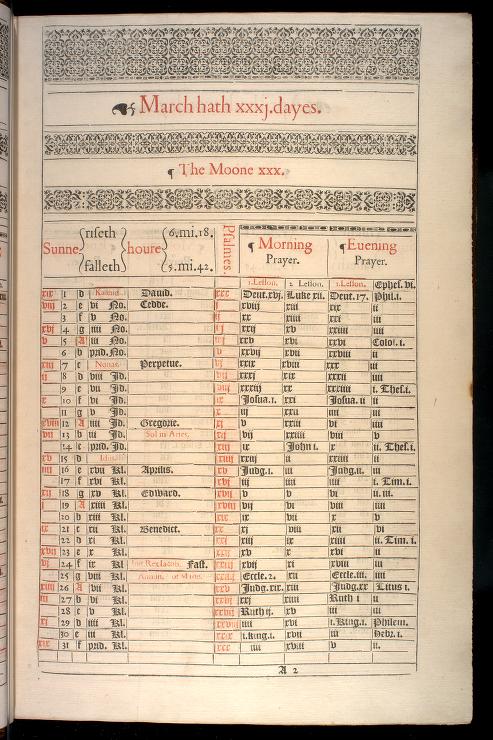 March hath xxxj.dayes.
The Moone xxx.
Sunne riseth houre 6.mi.18.
falleth 5.mi.42.
Psalmes.
¶ Morning Prayer.
¶ Euening Prayer.
1.Lesson. 2 Lesson. 1.Lesson. Ephes.vi.
xix 1 d Kalend. Dauid. xxx Deut.xvj. Luke xii. Deut.17. Phil.i.
2 e vi No. Cedde. xiii ii
3 f v No. xx xiiii xxi iii
xvi 4 g iiii No. xxij xv iiii
v 5 A iii No. xxv xvi xxvi Colos.i.
6 b prid.No. xxvij xvii xxviii ii
xiii 7 c Nonas. Perpetue. xxix xviii xxx iii
ii 8 d viii Id. xxxj xix xxxii iiii
9 e vii Id. xxxiij xx xxxiiii i. Thes.i.
x 10 f vi Id. Iosua.i. xxi Iosua.ii ii
11 g v Id. iij xxii iiii iii
12 A iiii Id. Gregorie. v xxiii vi iiii
vii 13 b iii Id. Sol in Aries. vij xxiiii viii v
14 c prid. Id. ix Iohn i. x ii. Thes.i.
xv 15 d Idus. xxiij ii xxiiii ii
iiii 16 e xvii Kl. Aprilis. Judg.i. iii Judg.ii. iii
17 f xvi Kl. iij iiii iiii i. Tim.i.
xii 18 g xv Kl. Edward. v v vi ii.iii.
i 19 A xiiii Kl. vij vi viii iiii
20 b xiii Kl. ix vii x v
ix 21 c xii Kl. Benedict. xj viii xii vi
22 d xi Kl. xiij ix xiiii ii. Tim.i.
xvii 23 e x Kl. x xvi ii
vi 24 f ix Kl. Fast. xvij xi xviii iii
25 g viii Kl. Annun. of Mary. Eccle.2. xii Eccle.iii. iiii
26 A vii Kl. Judg.xix. xiii Judg.xx Titus i.
27 b vi Kl. xxj xiiii Ruth i ii
28 c v Kl. Ruth ij. xv iii iii
xi 29 d iiii Kl. iiii xvi i.King.i. Philem.
30 e iii Kl. i.king.i. xvii iii Hebr.i.
xix 31 f prid. Kl. xxx iiii xviii v ii
A 2